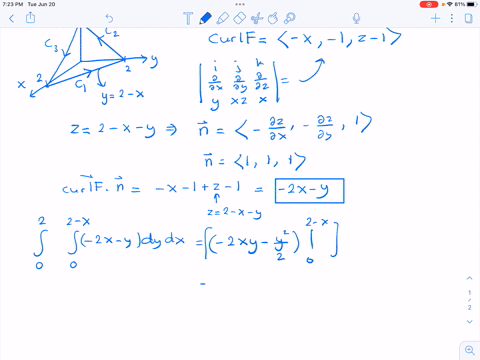 7:23 PM Tue Jun 20
81%
C₂
curl F = ⟨-x, -1, z-1⟩
C₃
2
2
y
x
C₁
y = 2-x
| i j k |
| ∂/∂x ∂/∂y ∂/∂z | =
| y xz x |
z = 2-x-y ⇒ n⃗ = ⟨-∂z/∂x, -∂z/∂y, 1⟩
n⃗ = ⟨1, 1, 1⟩
curl F · n⃗ = -x-1+z-1 = -2x-y
↑
z=2-x-y
∫₀² ∫₀²⁻ˣ (-2x-y) dy dx = [(-2xy - y²/2) |₀²⁻ˣ ]
=
1
/
2